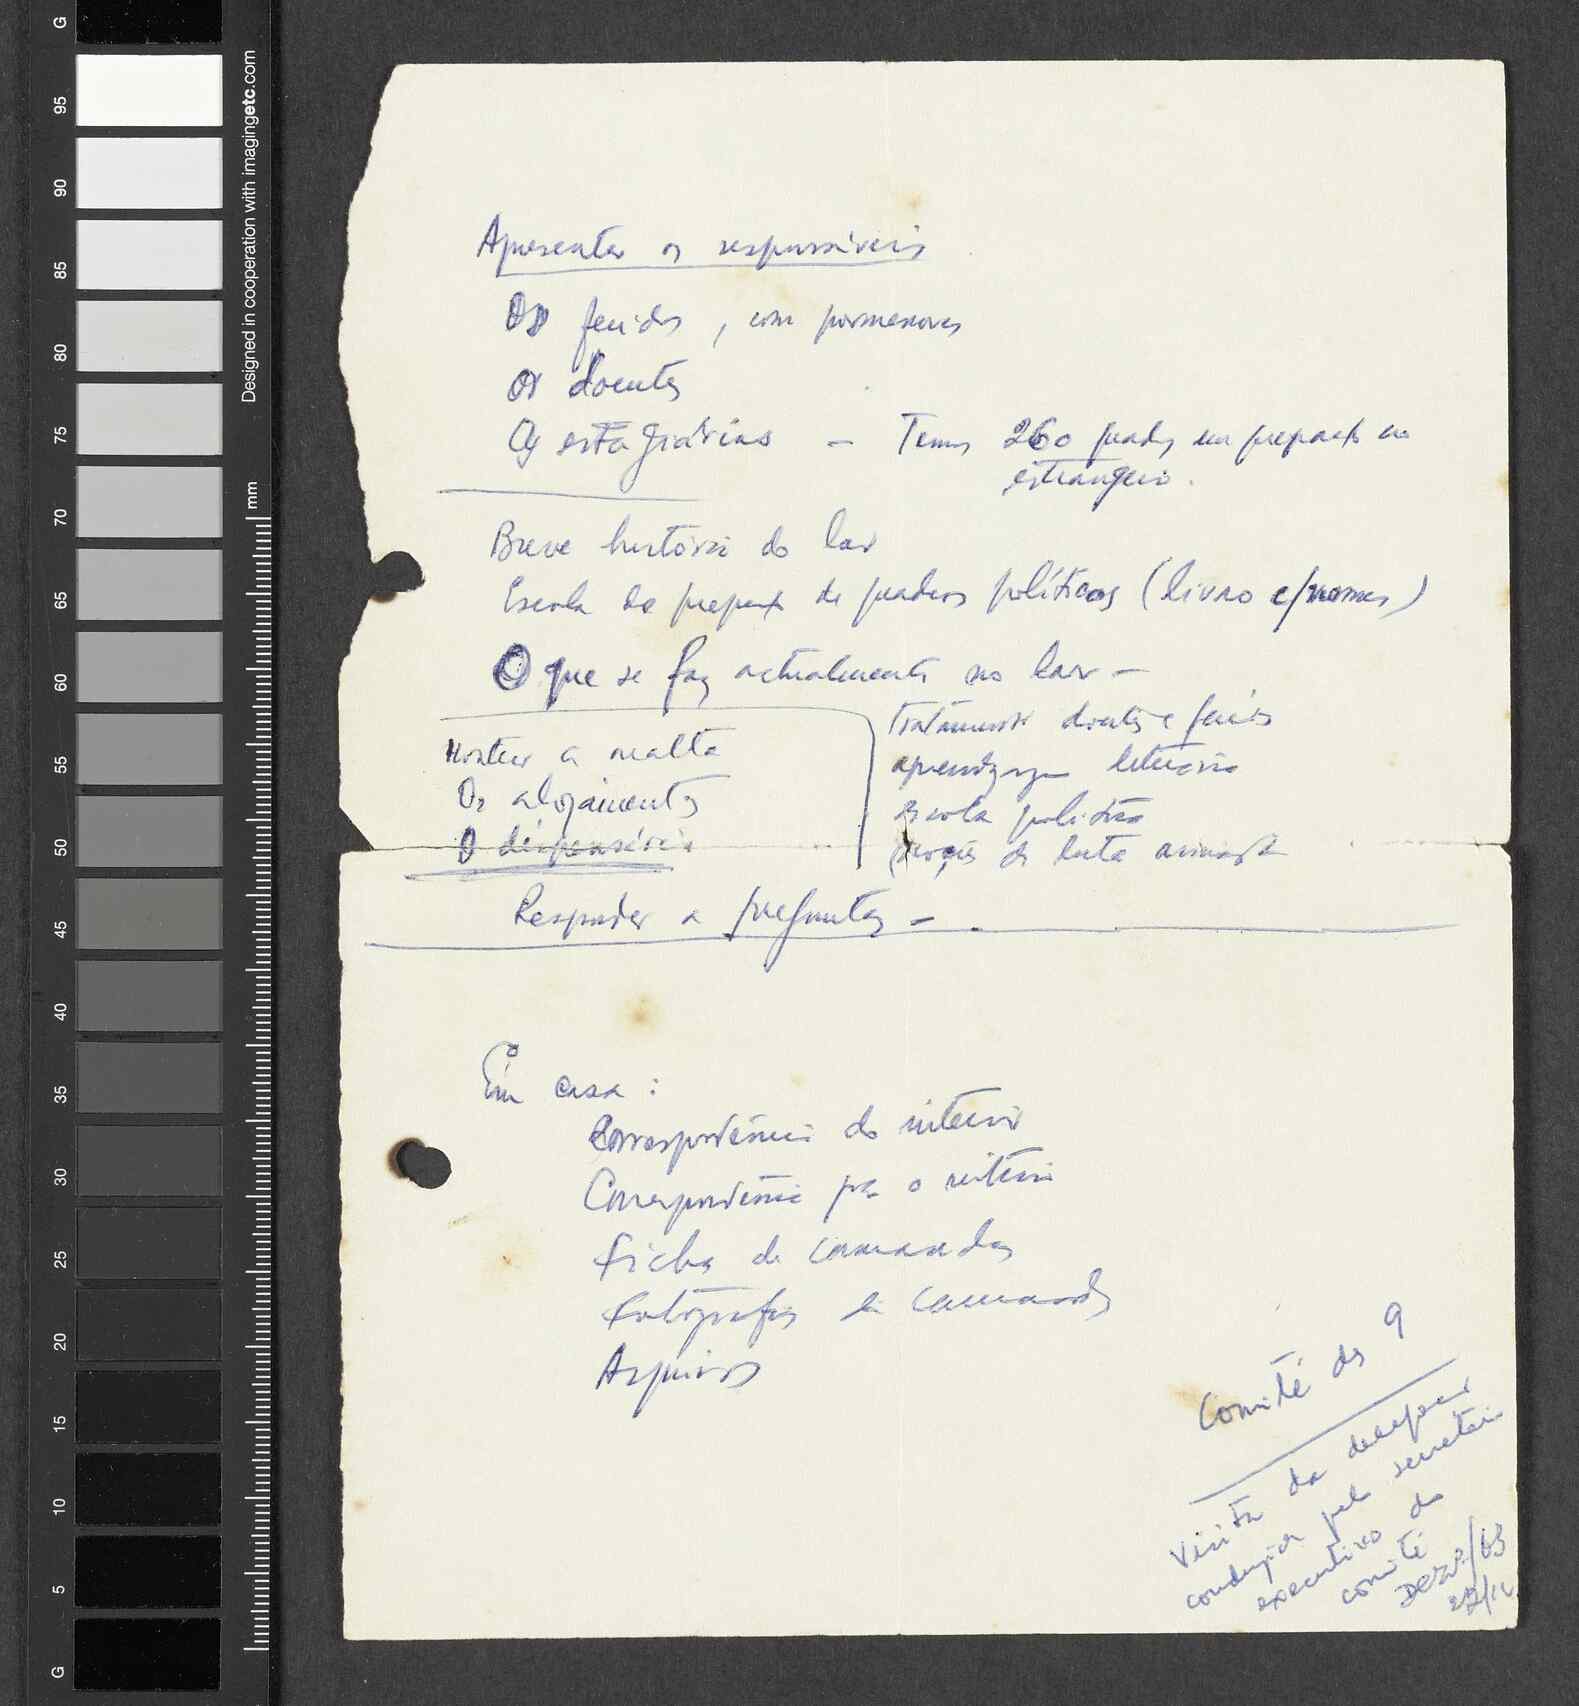 Apresentar os responsáveis
Os feridos, com pormenores
Os doentes
Os estagiários – Temos 260 quadros em prepar. no
estrangeiro.
Breve história do lar
Escola de prepar. de quadros políticos (livro c/nomes)
O que se faz actualmente no lar –
tratamento doentes e feridos
aprendizagem literária
escola política
noções de luta armada
Mostrar a malta
Os alojamentos
O dispensário
Responder a perguntas –
Em casa:
Correspondência do interior
Correspondência pª o interior
Fichas de camaradas
Fotografias de camaradas
Arquivos
Comité dos 9
Visita da
conduzida pelo secretário
executivo do
comité
Dezº/63
G
95
90
85
80
75
70
65
60
55
50
45
40
35
30
25
20
15
10
5
G
mm
Designed in cooperation with imagingetc.com